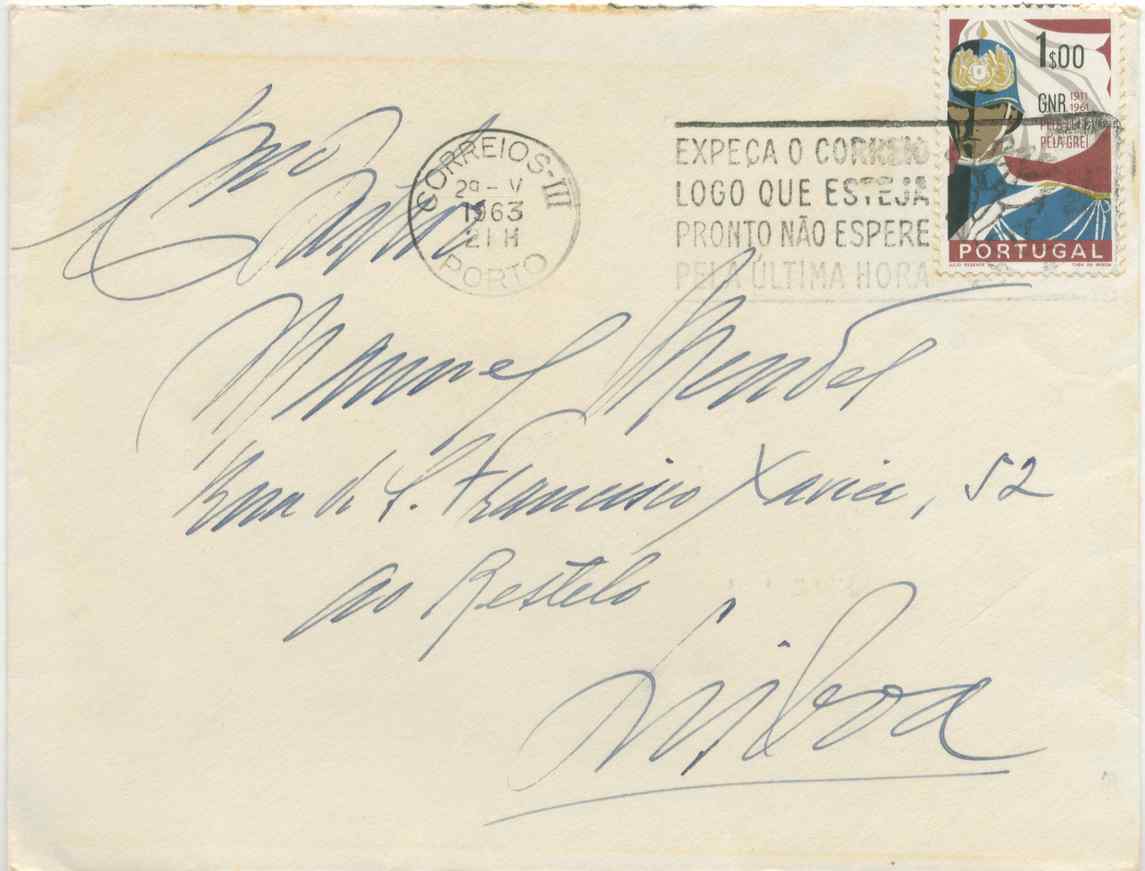 1$00
GNR 1911
1961
PELA GREI
PORTUGAL
CORREIOS-III
29-V
1963
21 H
PORTO
EXPEÇA O CORREIO
LOGO QUE ESTEJA
PRONTO NÃO ESPERE
PELA ÚLTIMA HORA
Manuel Mendes
Rua de S. Francisco Xavier, 52
ao Restelo
Lisboa